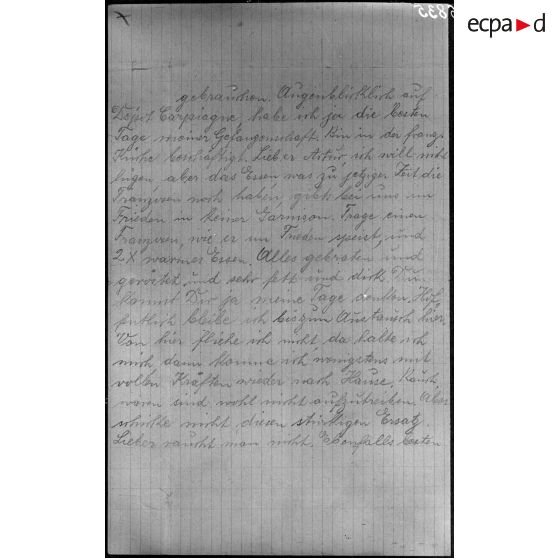 5835
ecpad
gebrauchen. Augenblicklich auf
Dépot Carpiagne, habe ich ja die besten
Tage meiner Gefangenschaft. Bin in der franz.
Küche beschäftigt. Lieber Artur, ich will nicht
lügen, aber das Essen was zu jetziger Zeit die
Franzosen noch haben, gibts bei uns im
Frieden in keiner Garnison. Frage einen
Franzosen, wie er im Frieden speist, und
2x warmes Essen. Alles gebraten und
geröstet, und sehr fett und dick. Du
kannst Dir ja meine Tage denken. Hof-
fentlich bleibe ich bis zum Austausch hier.
Von hier fliehe ich nicht, da halte ich
mich, dann komme ich wenigstens mit
vollen Kräften wieder nach Hause. Rauch
waren sind wohl nicht aufzutreiben. Aber
schicke nicht diesen Ersatz.
Lieber raucht man nicht. Ebenfalls besten